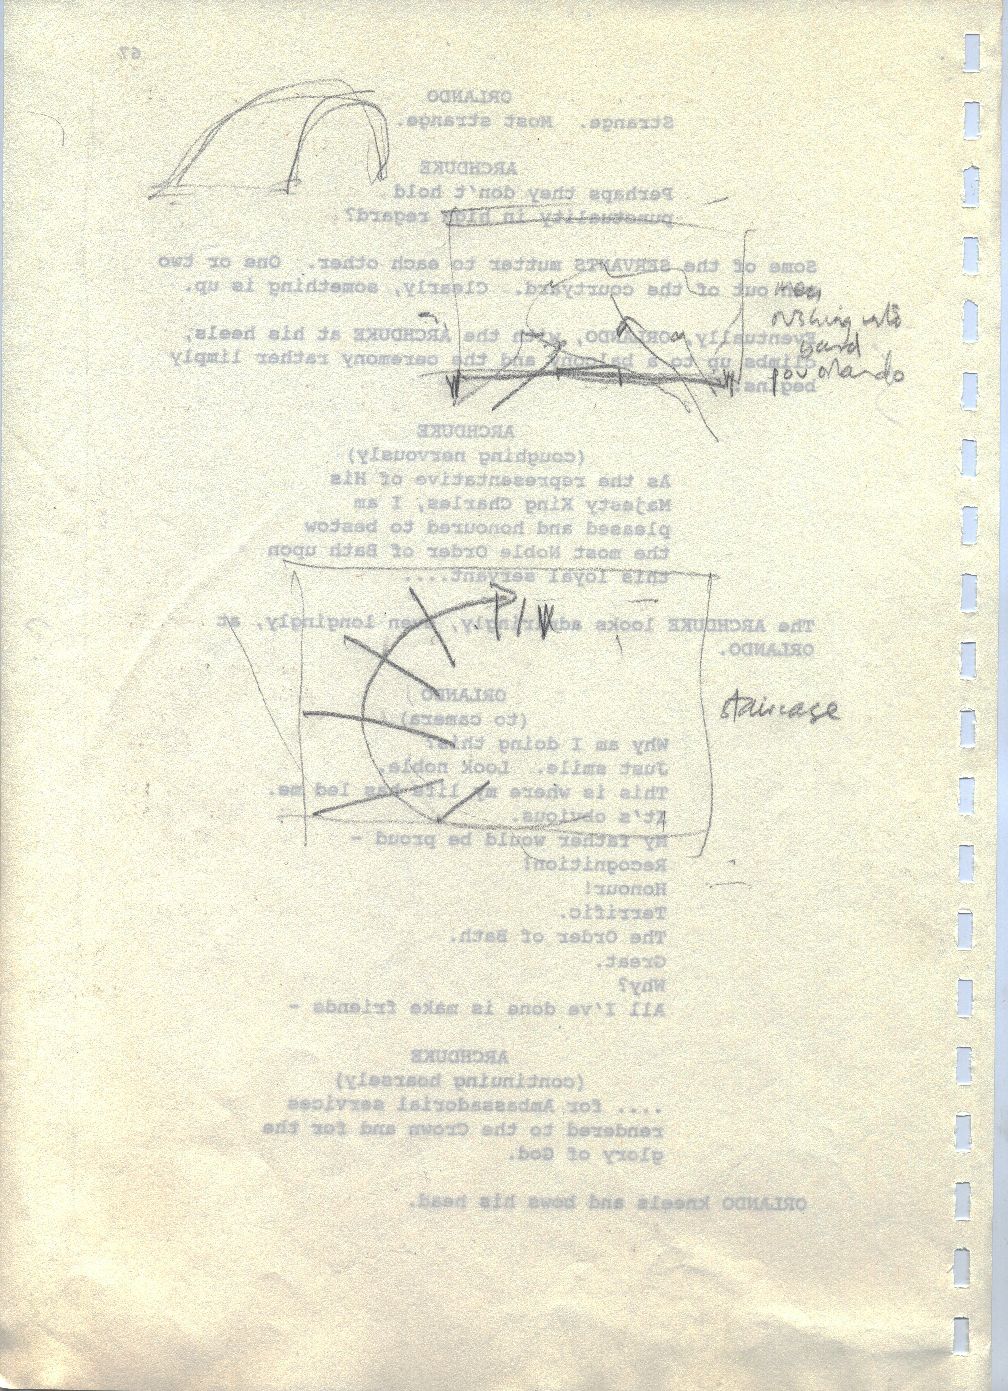 67
ORLANDO
Strange. Most strange.
ARCHDUKE
Perhaps they don't hold
punctuality in high regard?
Some of the SERVANTS mutter to each other. One or two
out of the courtyard. Clearly, something is up.
Eventually, ORLANDO, with the ARCHDUKE at his heels,
climbs up to a balcony and the ceremony rather limply
begins.
men
rushing into
yard
pov orlando
ARCHDUKE
(coughing nervously)
As the representative of His
Majesty King Charles, I am
pleased and honoured to bestow
the most Noble Order of Bath upon
this loyal servant....
The ARCHDUKE looks admiringly, even longingly, at
ORLANDO.
ORLANDO
(to camera)
Why am I doing this?
Just smile. Look noble.
This is where my life has led me.
It's obvious.
My father would be proud -
Recognition!
Honour!
Terrific.
The Order of Bath.
Great.
Why?
All I've done is make friends -
staircase
ARCHDUKE
(continuing hoarsely)
.... for Ambassadorial services
rendered to the Crown and for the
glory of God.
ORLANDO kneels and bows his head.